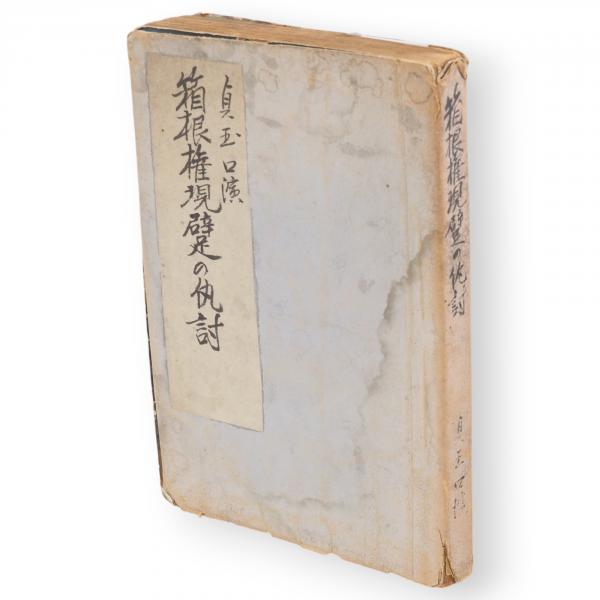 貞玉口演
箱根権現躄の仇討
箱根権現躄の仇討
貞玉口演